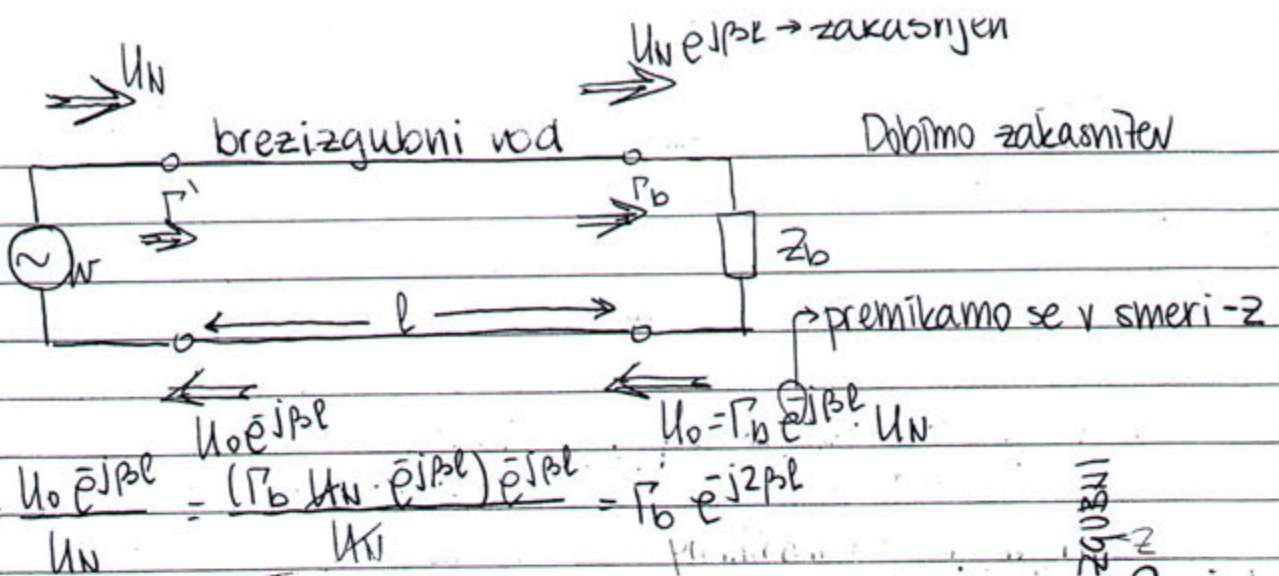 U_N
U_N e^jβl → zakasnjen
brezizgubni vod
Dobimo zakasnitev
Γ'
Γ_b
Z_b
l
→ premikamo se v smeri -z
U_0 e^-jβl
U_0 = Γ_b e^-jβl · U_N
U_0 e^-jβl / U_N = (Γ_b U_N · e^-jβl) e^-jβl / U_N = Γ_b e^-j2βl